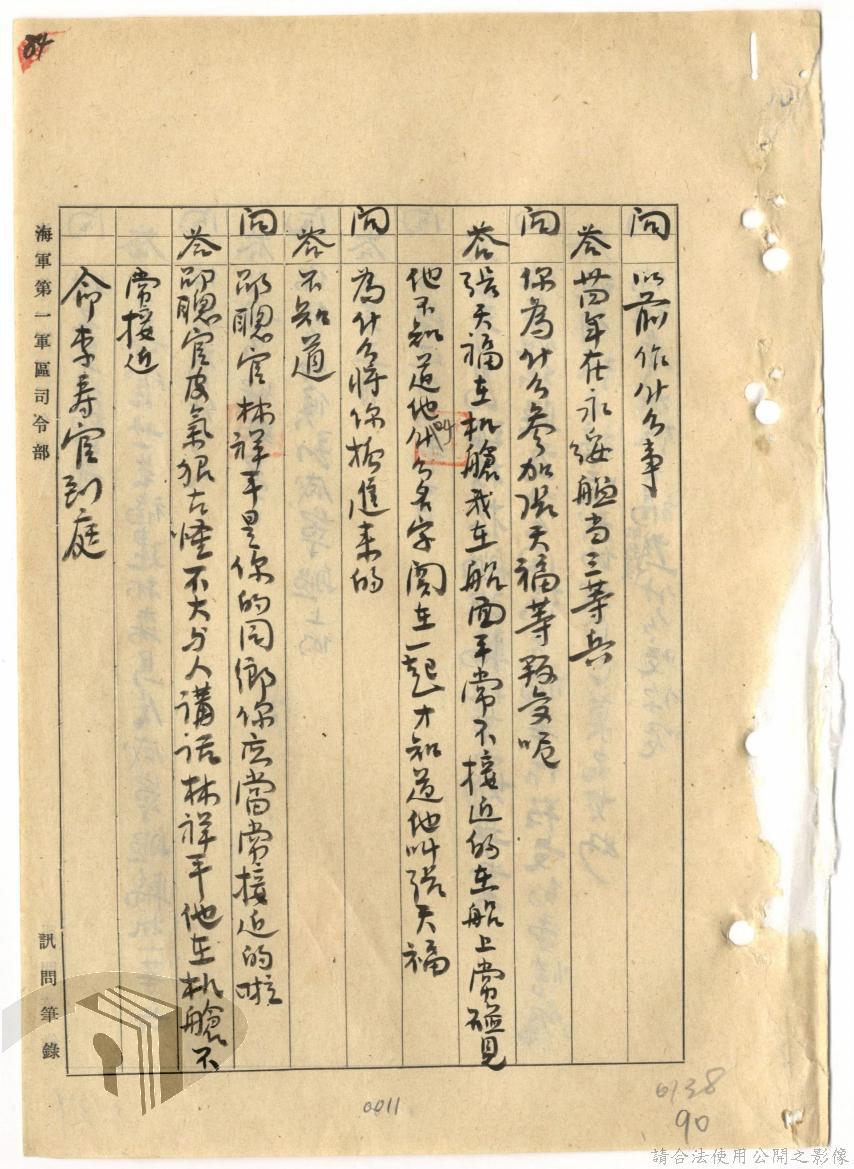 84
問 以前作什么事
答 廿四年在永綏艦当三等兵
問 你為什么參加張天福等叛变呢
答 張天福在机艙我在船面平常不接近的在船上常碰見
他不知道他叫什么名字関在一起才知道他叫張天福
問 為什么將你抓進来的
答 不知道
問 邵聰官林祥平是你的同鄉你应當常接近的啦
答 邵聰官皮氣狠古怪不大与人講話林祥平他在机艙不
常接近
命李寿官到庭
海軍第一軍區司令部
訊問筆錄
0011
6138
90
請合法使用公開之影像